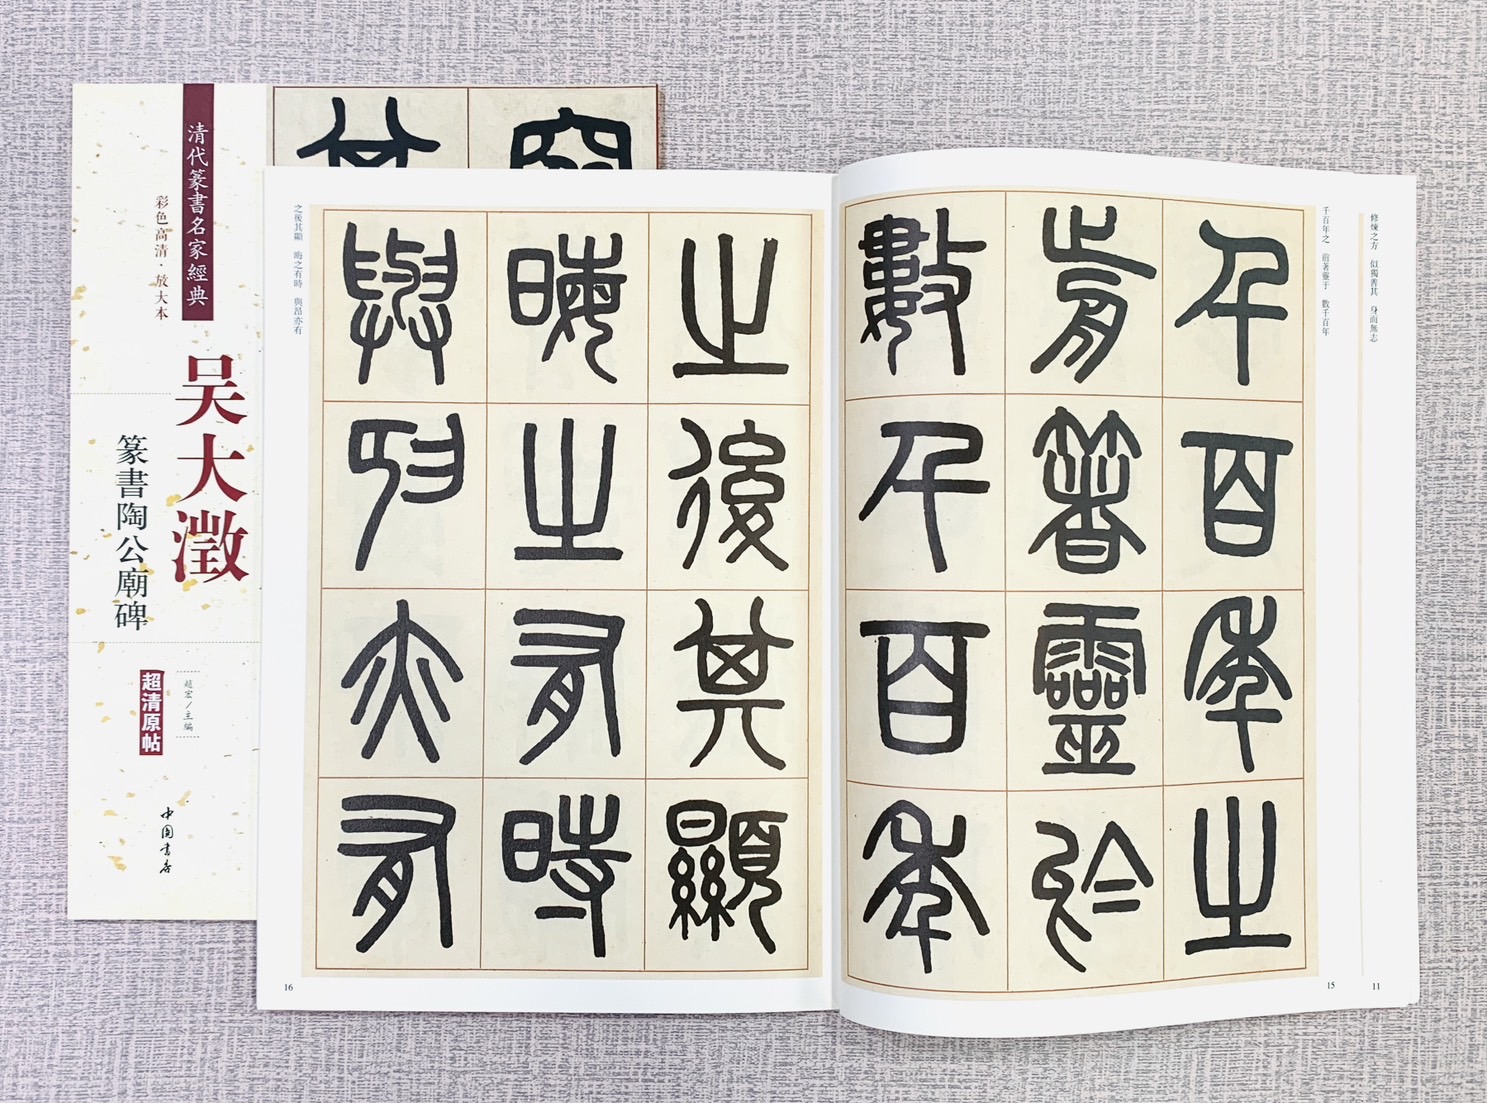 清代篆書名家經典
彩色高清·放大本
吴大澂
篆書陶公廟碑
趙宏/主編
超清原帖
中国书店
修煉之方 似獨善其 身而無志
11
千百年之 前著靈于 數千百年
千百年之
前著靈于
數千百年
15
之後其顯
晦之有時
與卬亦有
之後其顯 晦之有時 與昂亦有
16